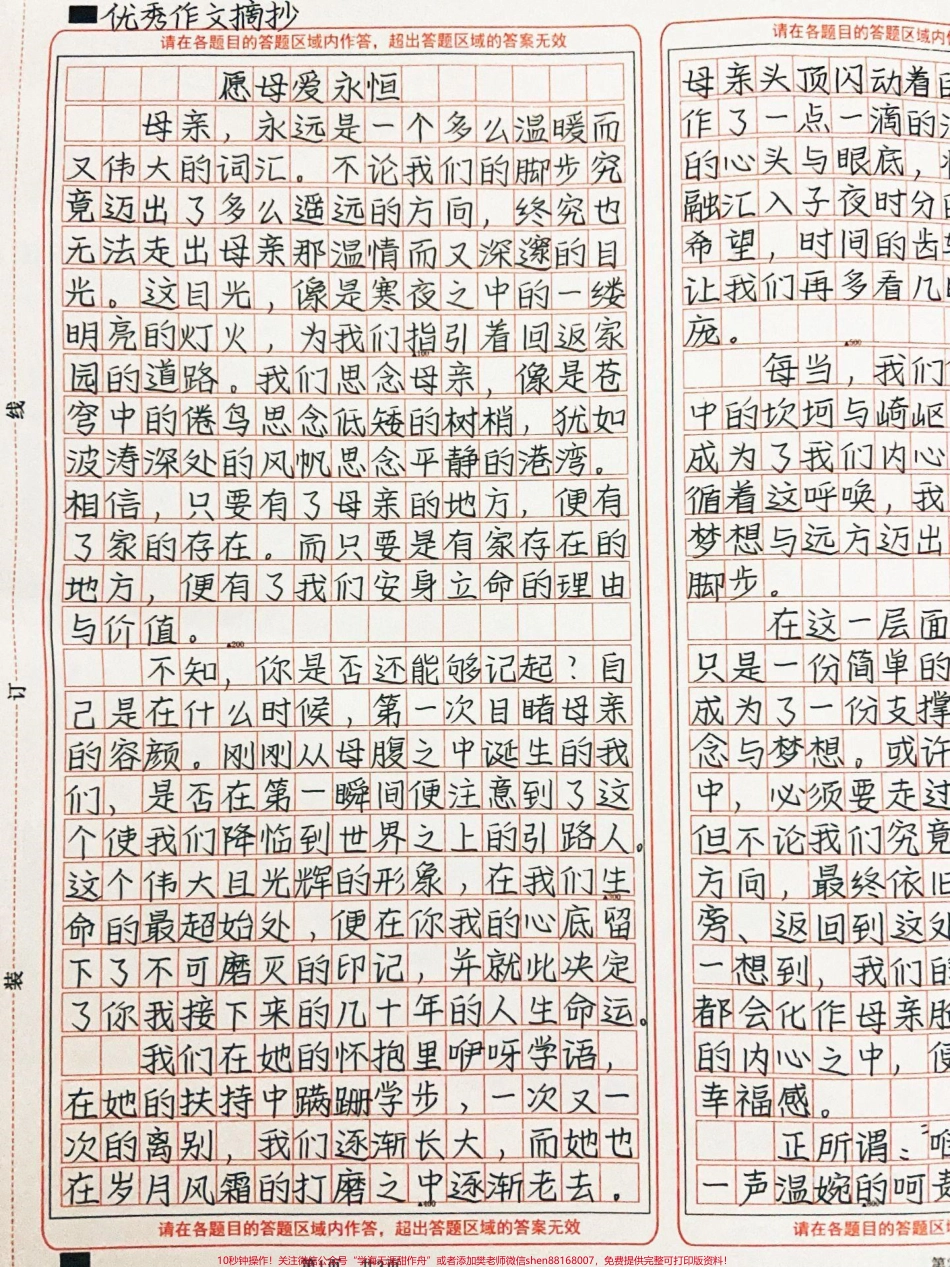 优秀作文摘抄
请在各题目的答题区域内作答，超出答题区域的答案无效
愿母爱永恒
母亲，永远是一个多么温暖而
又伟大的词汇。不论我们的脚步究
竟迈出了多么遥远的方向，终究也
无法走出母亲那温情而又深邃的目
光。这目光，像是寒夜之中的一缕
明亮的灯火，为我们指引着回返家
▲100
园的道路。我们思念母亲，像是苍
穹中的倦鸟思念低矮的树梢，犹如
波涛深处的风帆思念平静的港湾。
相信，只要有了母亲的地方，便有
了家的存在。而只要是有家存在的
地方，便有了我们安身立命的理由
与价值。
▲200
不知，你是否还能够记起？自
己是在什么时候，第一次目睹母亲
的容颜。刚刚从母腹之中诞生的我
们、是否在第一瞬间便注意到了这
个使我们降临到世界之上的引路人。
这个伟大且光辉的形象，在我们生
▲300
命的最超始处，便在你我的心底留
下了不可磨灭的印记，并就此决定
了你我接下来的几十年的人生命运。
我们在她的怀抱里咿呀学语，
在她的扶持中蹒跚学步，一次又一
次的离别，我们逐渐长大，而她也
在岁月风霜的打磨之中逐渐老去。
▲400
请在各题目的答题区域内作答，超出答题区域的答案无效
请在各题目的答题区域内
母亲头顶闪动着
作了一点一滴的
的心头与眼底，
融汇入子夜时分
希望，时间的齿
让我们再多看几
庞。
▲500
每当，我们
中的坎坷与崎岖
成为了我们内心
循着这呼唤，我
梦想与远方迈出
脚步。
在这一层面
只是一份简单的
成为了一份支撑
念与梦想。或许
中，必须要走过
但不论我们究竟
方向，最终依旧
旁、返回到这处
一想到，我们的
都会化作母亲
的内心之中，便
幸福感。
正所谓：“
一声温婉的呵责
▲600
请在各题目的答题区域
线
订
装
10秒钟操作！关注微信公众号“学海无涯甜作舟”或者添加樊老师微信shen88168007，免费提供完整可打印版资料！